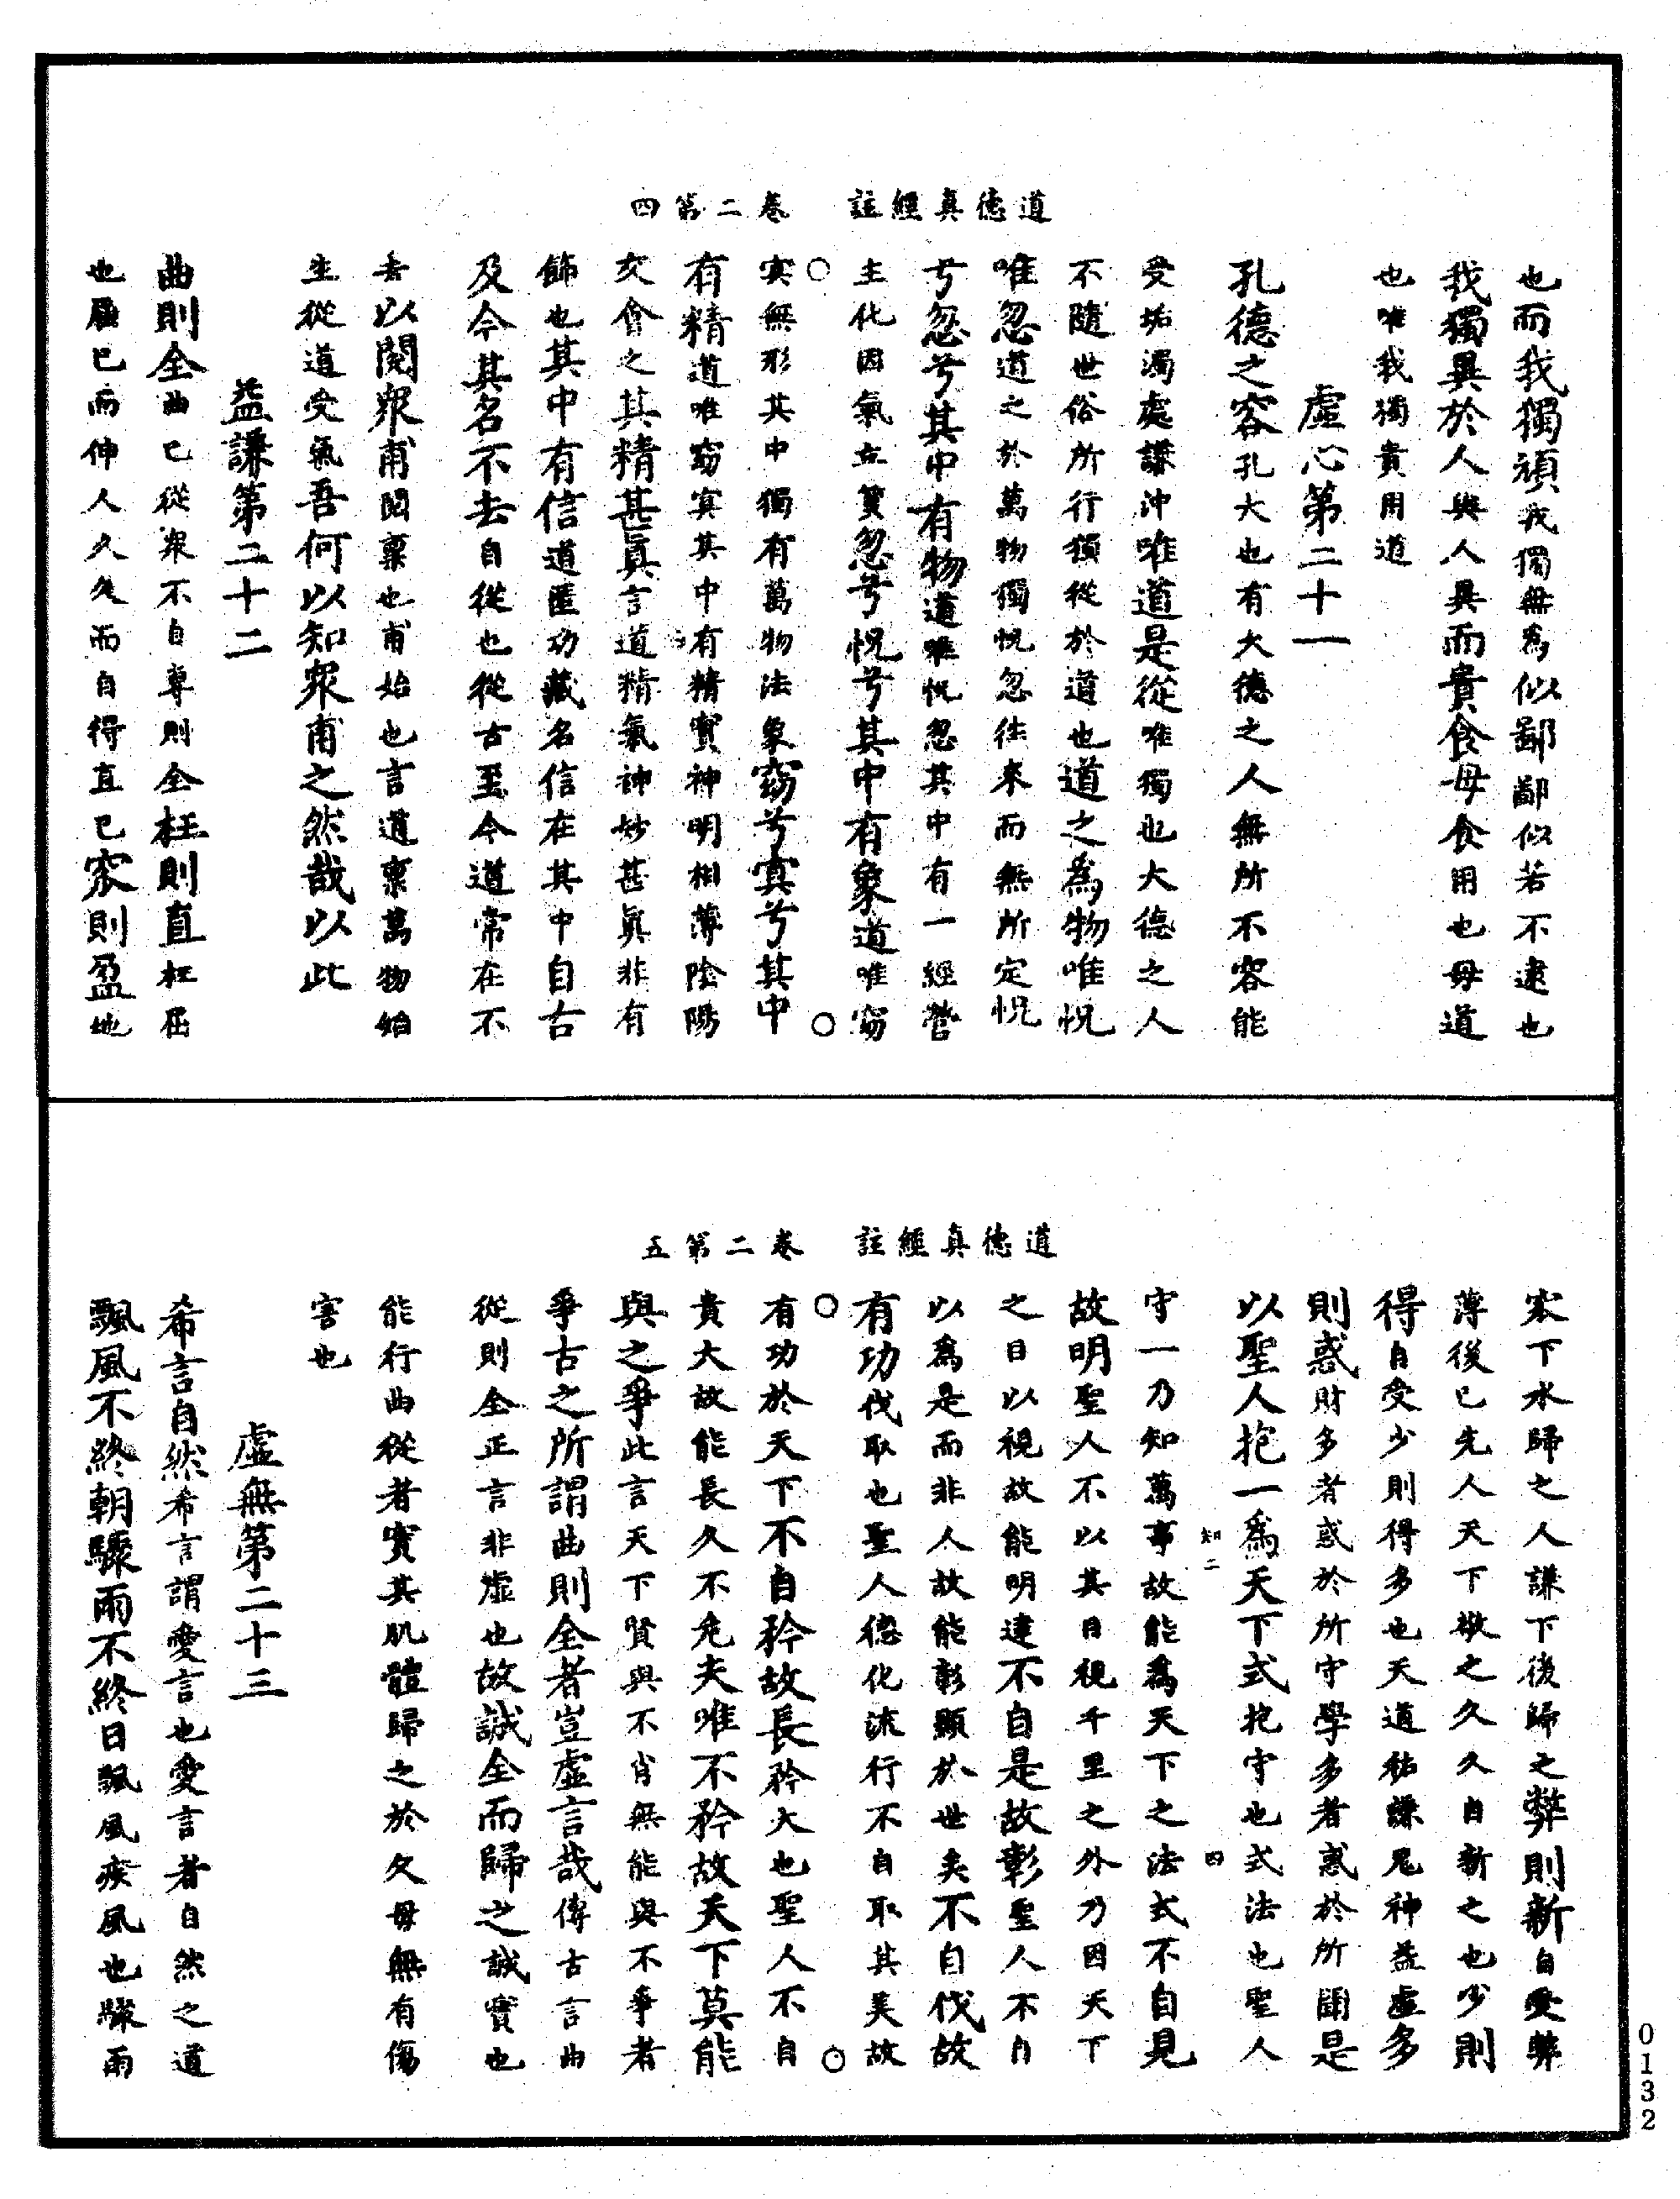 道德真經註　卷二第四
也而我獨頑我獨無為似鄙鄙似若不逮也
我獨異於人與人異而貴食母食用也母道
也唯我獨貴用道
虛心第二十一
孔德之容孔大也有大德之人無所不容能
受垢濁處謙沖唯道是從唯獨也大德之人
不隨世俗所行獨從於道也道之為物唯怳
唯忽道之於萬物獨怳忽往來而無所定怳
兮忽兮其中有物道唯怳忽其中有一經營
主化因氣立質忽兮怳兮其中有象道唯窈
㝠無形其中獨有萬物法象窈兮㝠兮其中
有精道唯窈㝠其中有精實神明相薄陰陽
交會之其精甚真言道精氣神妙甚真非有
飾也其中有信道匿功藏名信在其中自古
及今其名不去自從也從古至今道常在不
去以閱眾甫閱稟也甫始也言道稟萬物始
生從道受氣吾何以知眾甫之然哉以此
益謙第二十二
曲則全曲己從眾不自專則全枉則直枉屈
也屈己而伸人久久而自得直己窊則盈地
道德真經註　卷二第五
窊下水歸之人謙下後歸之弊則新自受弊
薄後己先人天下敬之久久自新之也少則
得自受少則得多也天道祐謙鬼神益虛多
則惑財多者惑於所守學多者惑於所聞是
以聖人抱一為天下式抱守也式法也聖人
知二　四
守一乃知萬事故能為天下之法式不自見
故明聖人不以其目視千里之外乃因天下
之目以視故能明達不自是故彰聖人不自
以為是而非人故能彰顯於世矣不自伐故
有功伐取也聖人德化流行不自取其美故
有功於天下不自矜故長矜大也聖人不自
貴大故能長久不危夫唯不矜故天下莫能
與之爭此言天下賢與不肖無能與不爭者
爭古之所謂曲則全者豈虛言哉傳古言曲
從則全正言非虛也故誠全而歸之誠實也
能行曲從者實其肌體歸之於父母無有傷
害也
虛無第二十三
希言自然希言謂愛言也愛言者自然之道
飄風不終朝驟雨不終日飄風疾風也驟雨
0132